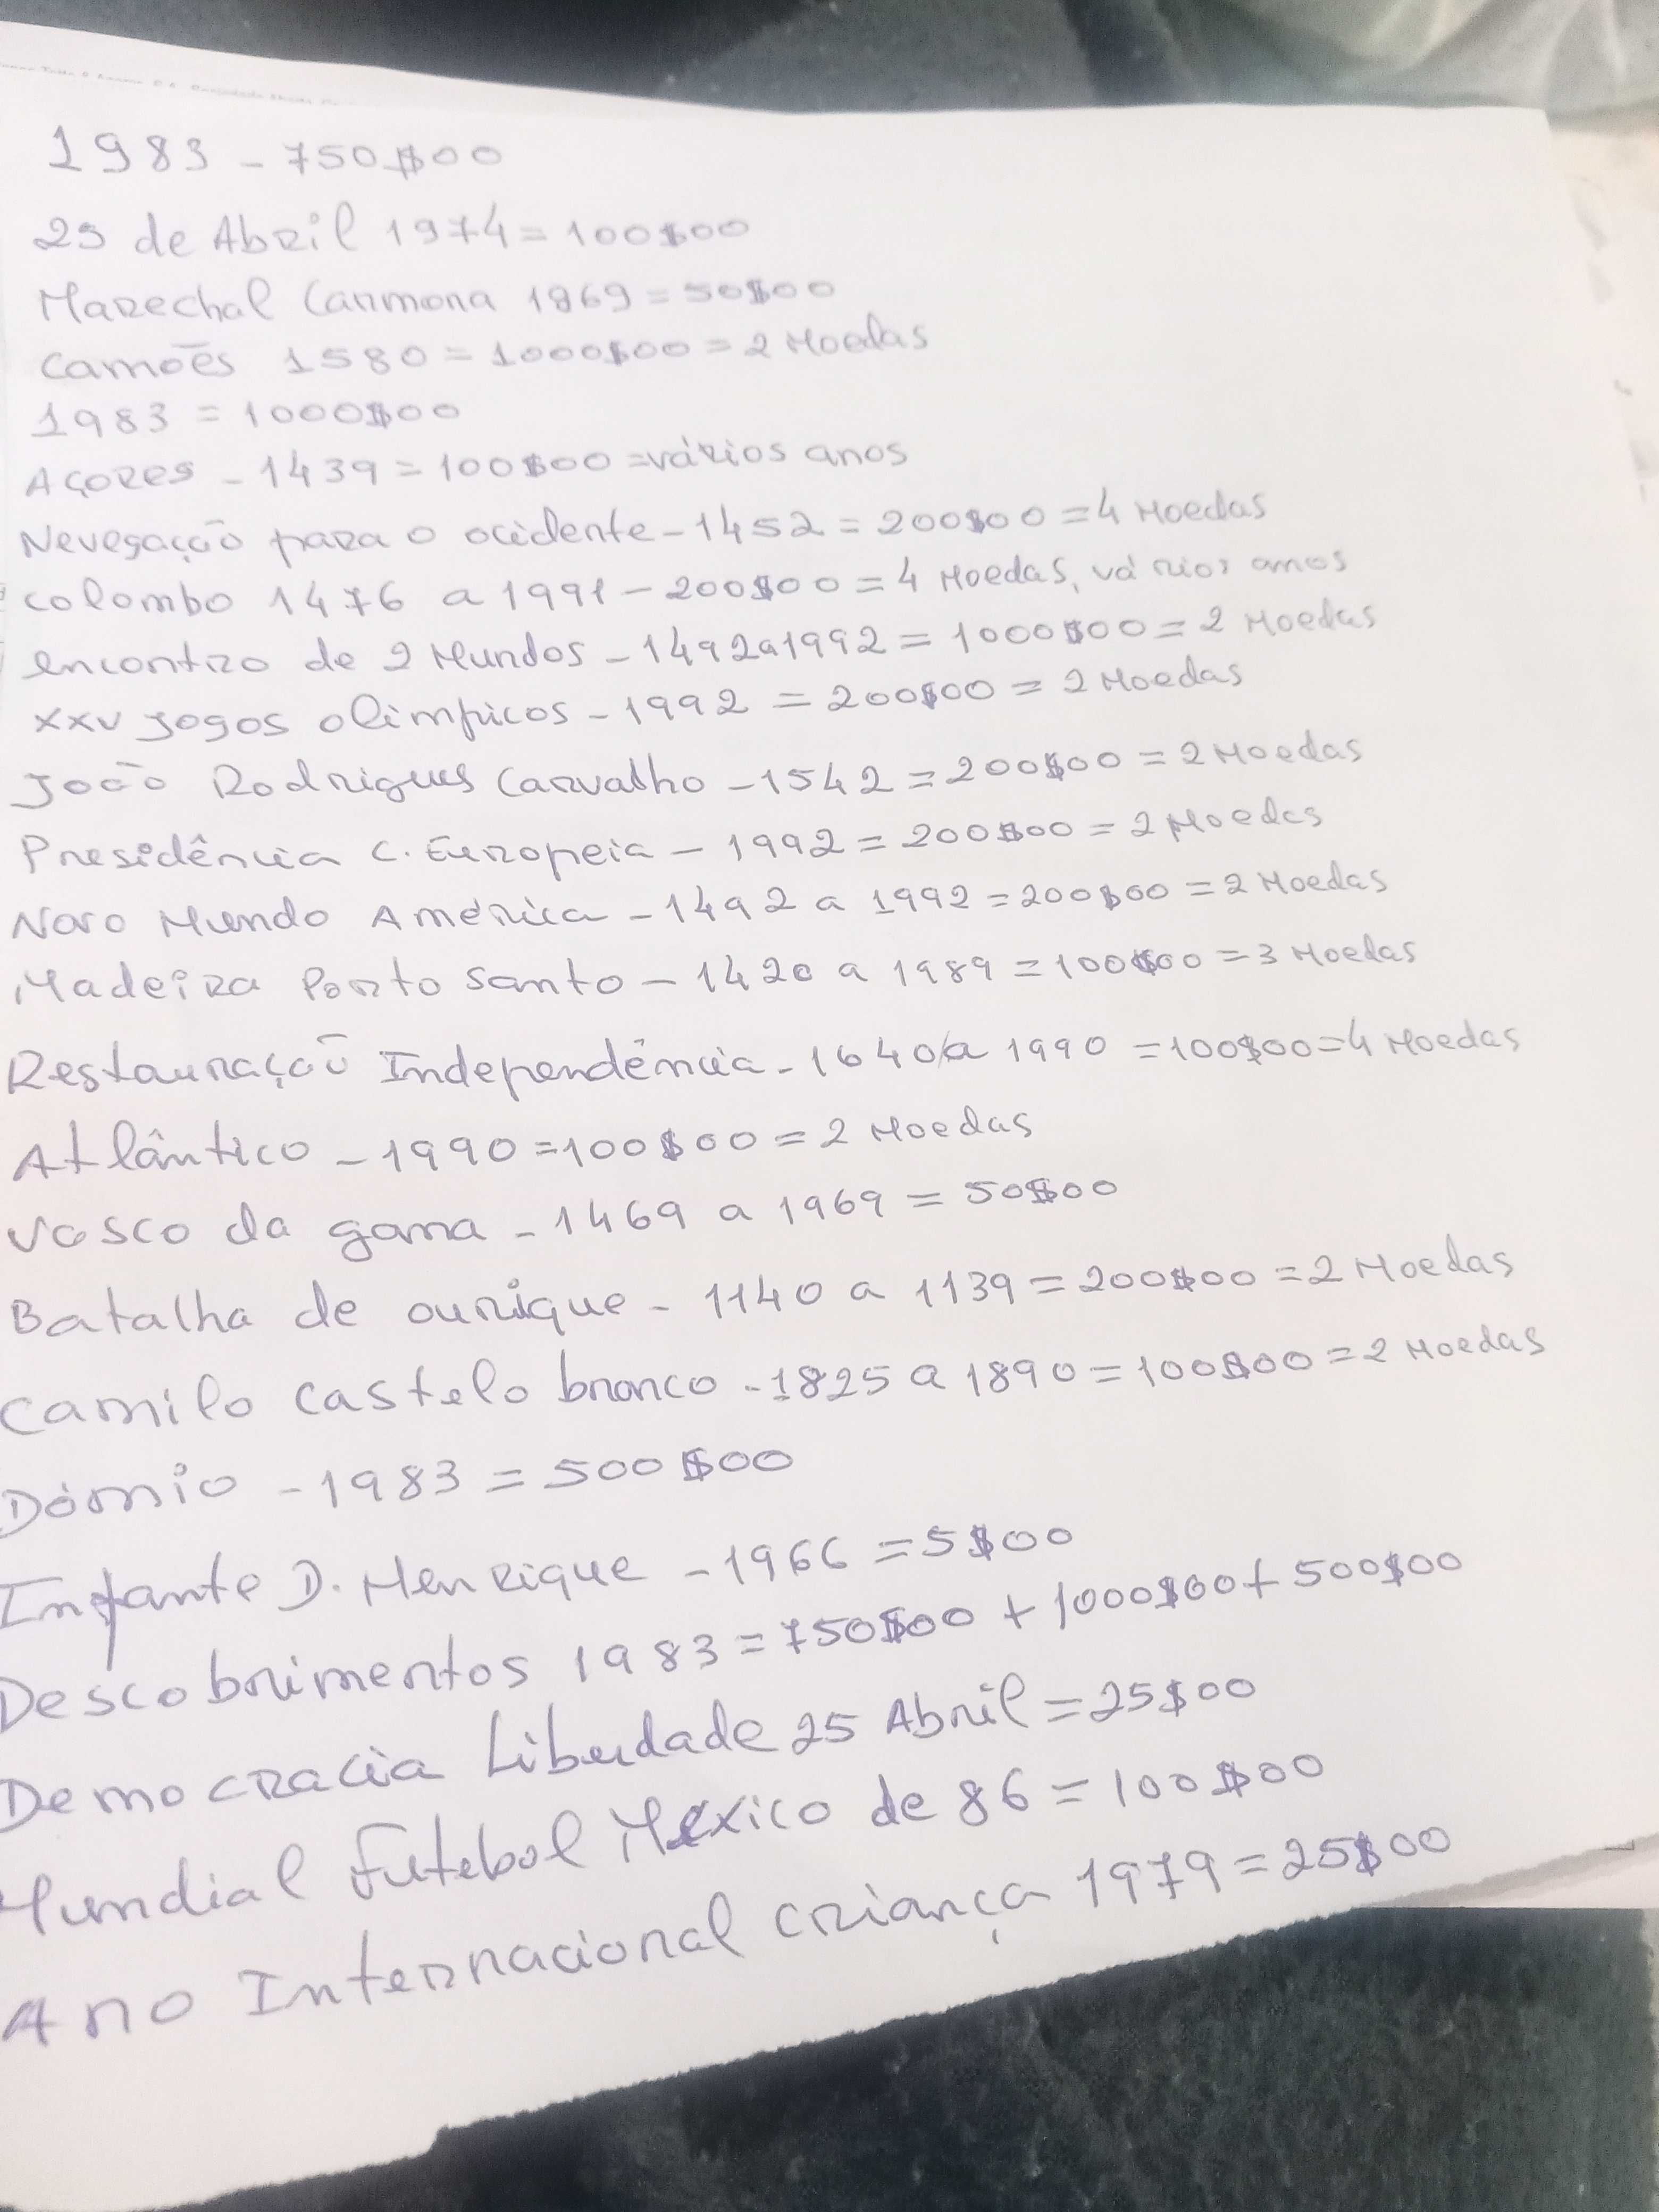 1983 - 750$00
25 de Abril 1974 = 100$00
Marechal Carmona 1969 = 50$00
Camões 1580 = 1000$00 = 2 Moedas
1983 = 1000$00
Açores - 1439 = 100$00 = vários anos
Nevegação para o ocidente - 1452 = 200$00 = 4 Moedas
Colombo 1476 a 1991 - 200$00 = 4 Moedas, vários anos
encontro de 2 Mundos - 1492 a 1992 = 1000$00 = 2 Moedas
XXV Jogos olimpicos - 1992 = 200$00 = 2 Moedas
João Rodrigues Carvalho - 1542 = 200$00 = 2 Moedas
Presidência C. Europeia - 1992 = 200$00 = 2 Moedas
Novo Mundo América - 1492 a 1992 = 200$00 = 2 Moedas
Madeira Porto Santo - 1420 a 1989 = 100$00 = 3 Moedas
Restauração Independência - 1640 a 1990 = 100$00 = 4 Moedas
Atlântico - 1990 = 100$00 = 2 Moedas
Vasco da gama - 1469 a 1969 = 50$00
Batalha de ourique - 1140 a 1139 = 200$00 = 2 Moedas
Camilo Castelo branco - 1825 a 1890 = 100$00 = 2 Moedas
Dómio - 1983 = 500$00
Infante D. Henrique - 1966 = 5$00
Descobrimentos 1983 = 750$00 + 1000$00 + 500$00
Democracia Liberdade 25 Abril = 25$00
Mundial Futebol México de 86 = 100$00
Ano Internacional criança 1979 = 25$00